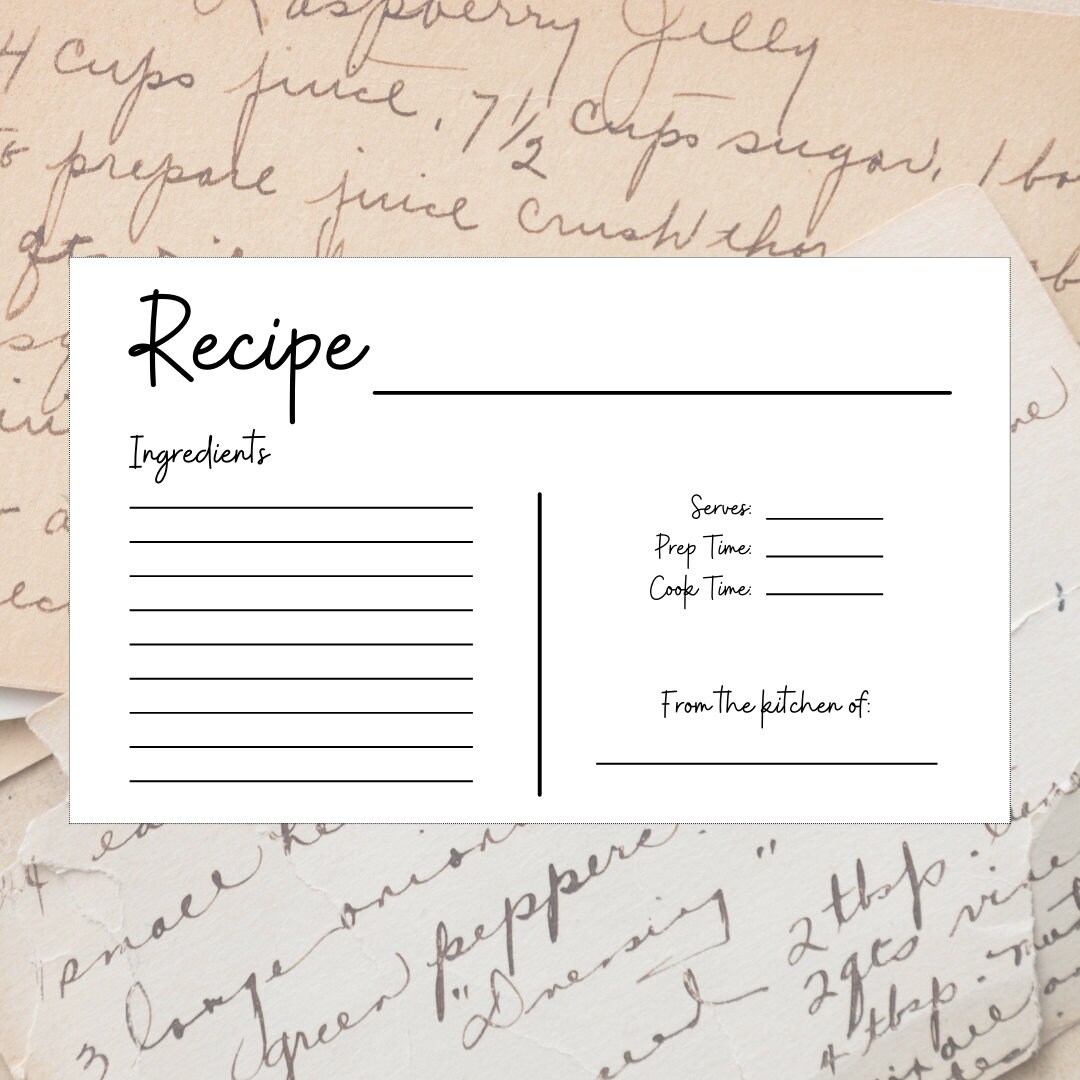 Raspberry Jelly
4 cups juice, 7 1/2 cups sugar, 1 bo
to prepare juice crush thor
qt
Recipe
Ingredients
Serves:
Prep Time:
Cook Time:
From the kitchen of:
small he
3 large onion
green peppers.
"Dressing"
2 tbsp.
2 qts vine
4 tbsp. must